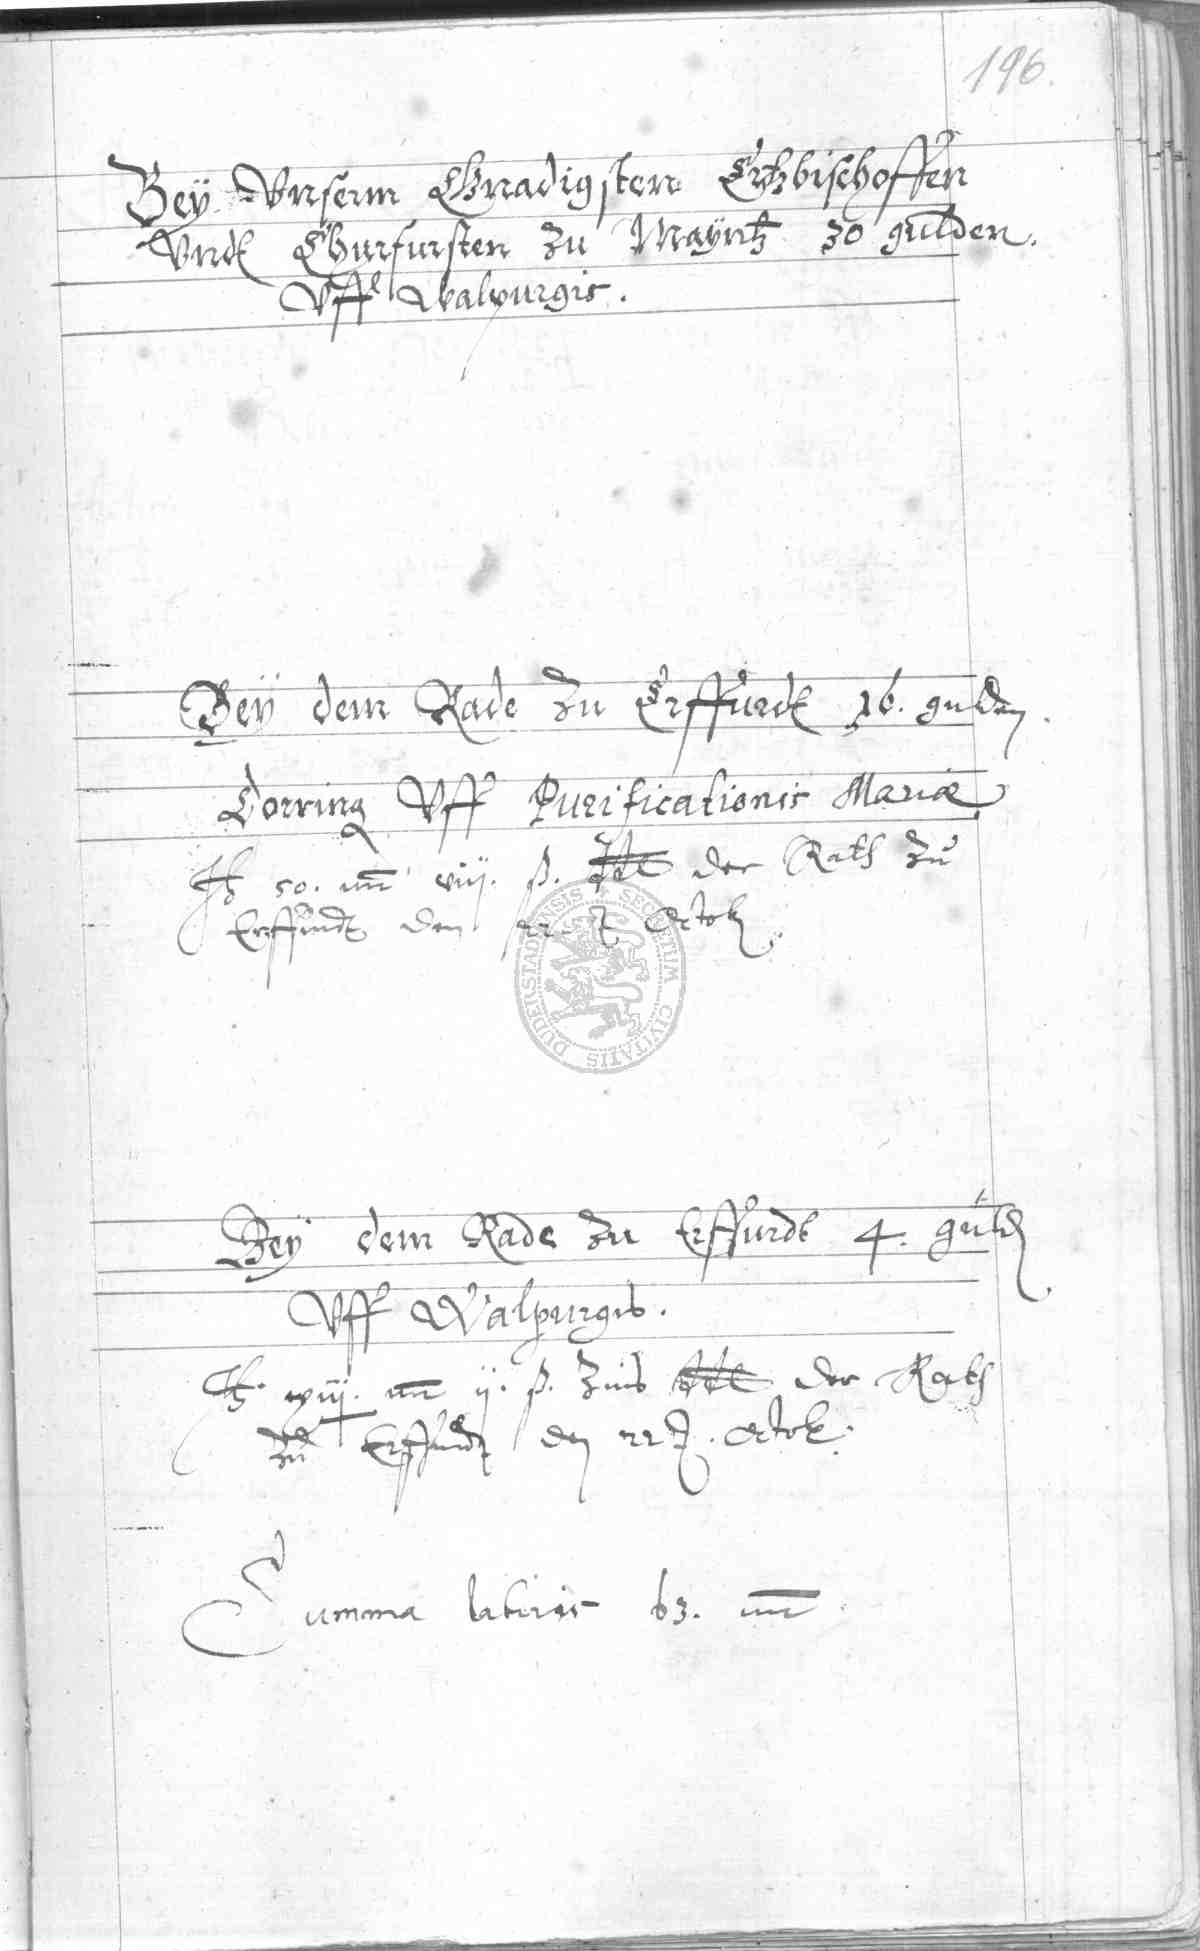 196.
Bey Vnserm Gnadigsten Ertzbischoffen
Vndt Churfursten zu Mayntz 30 gulden.
Vff Walpurgis.
Bey dem Rade zu Erffurdt 16. gulden
Dorring Vff Purificationis Mariæ
50. viij. ß. der Rath zu
Erffurdt den 22 Octob
SECRETUM CIVITATIS DUDERSTADENSIS
Bey dem Rade zu Erffurdt 4. guld
Vff Walpurgis.
xiij. ij. ß. Zins der Rath
zu Erffurdt den 22 Octob.
Summa lateris 63.